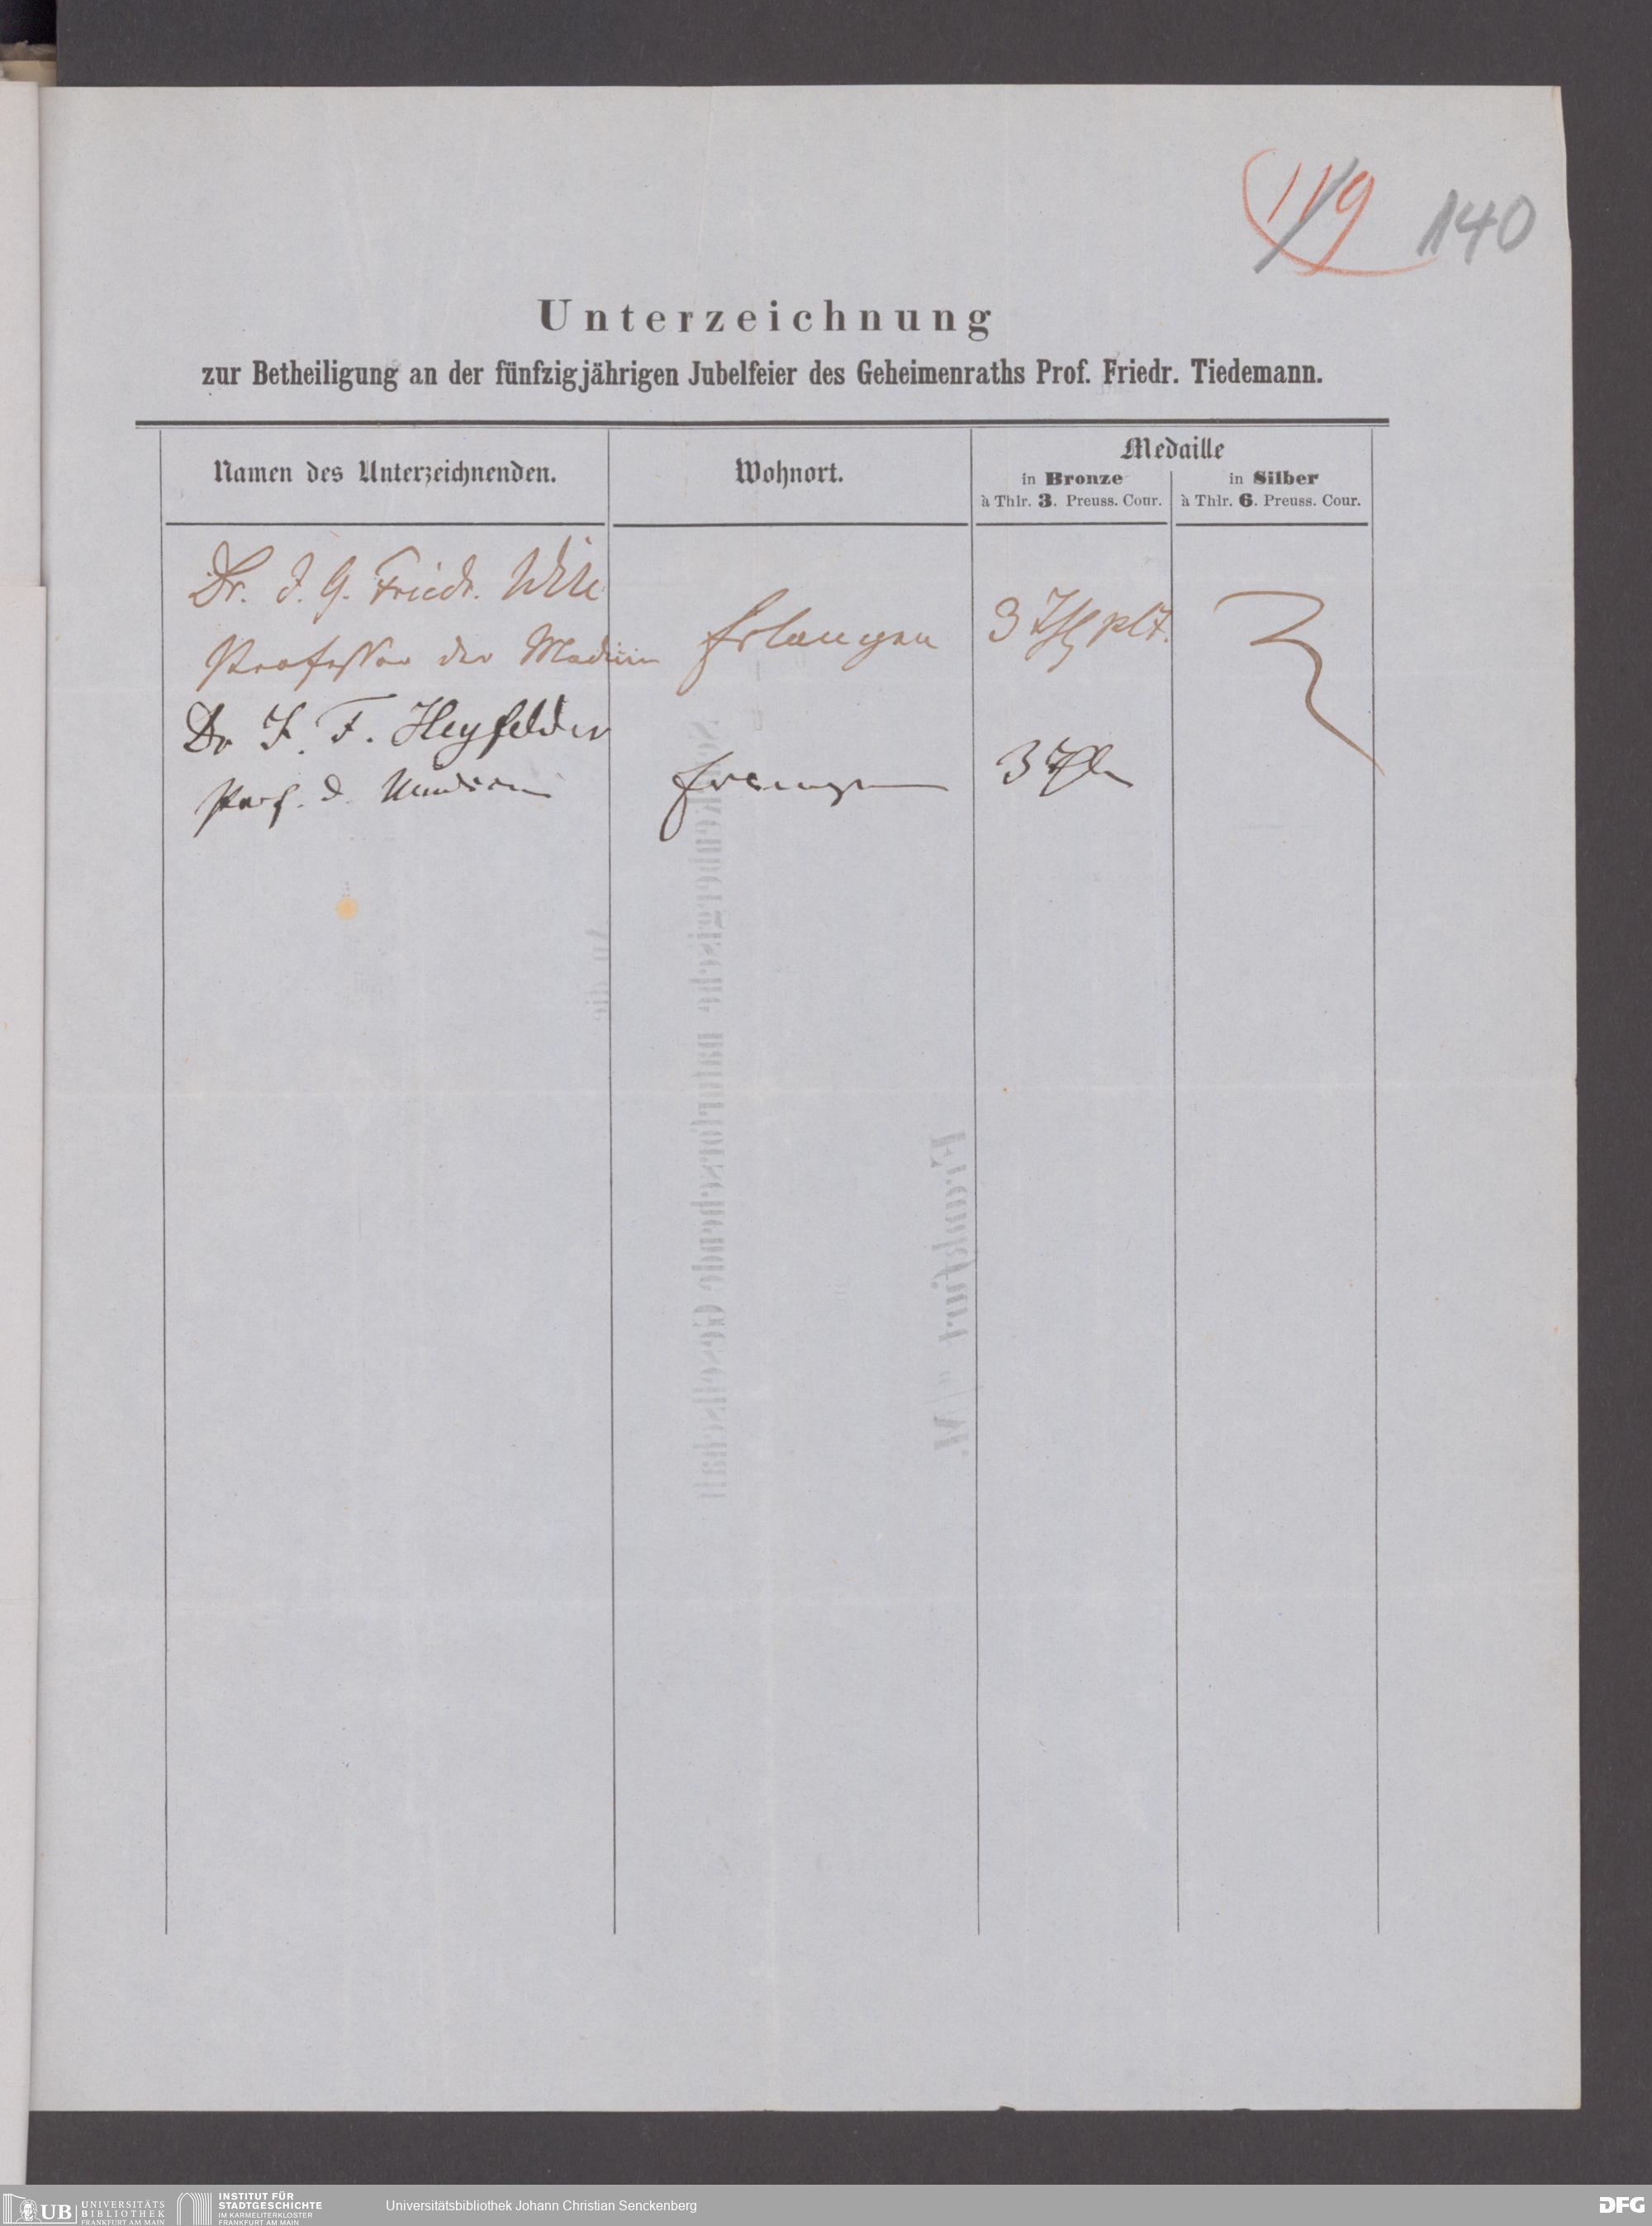 119 140
Unterzeichnung
zur Betheiligung an der fünfzigjährigen Jubelfeier des Geheimenraths Prof. Friedr. Tiedemann.
Medaille
Namen des Unterzeichnenden. Wohnort. in Bronze in Silber
à Thlr. 3. Preuss. Cour. à Thlr. 6. Preuss. Cour.
Dr. J. G. Friedr. Will
Professor der Medicin Erlangen 3
Dr J. F. Heyfelder
Prof. d. Medicin Erlangen 3
An die
Senckenbergische naturforschende Gesellschaft
Frankfurt a/M.
UB UNIVERSITÄTS
BIBLIOTHEK
FRANKFURT AM MAIN
INSTITUT FÜR
STADTGESCHICHTE
IM KARMELITERKLOSTER
FRANKFURT AM MAIN
Universitätsbibliothek Johann Christian Senckenberg
DFG